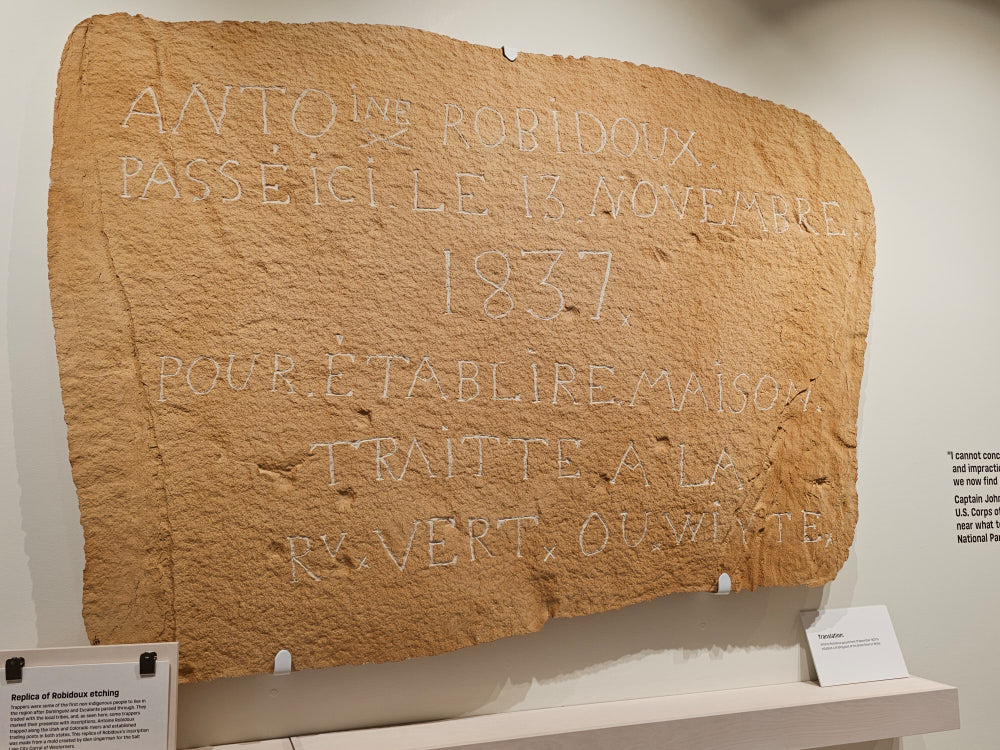 ANTOINE ROBIDOUX
PASSÉ ICI. LE 13. NOVEMBRE.
1837.
POUR. ÉTABLIRE. MAISON.
TRAITTE A LA
RV. VERT. OU. WIYTE.
Replica of Robidoux etching
Trappers were some of the first non indigenous people to live in
the region after Dominguez and Escalante passed through. They
traded with the local tribes, and, as seen here, some trappers
marked their presence with inscriptions. Antoine Robidoux
trapped along the Utah and Colorado rivers and established
trading posts in both states. This replica of Robidoux's inscription
was made from a mold created by Glen Ungerman for the Salt
Lake City Corral of Westerners.
Translation:
"I cannot conc
and impracti
we now find
Captain John
U.S. Corps of
near what
National Par